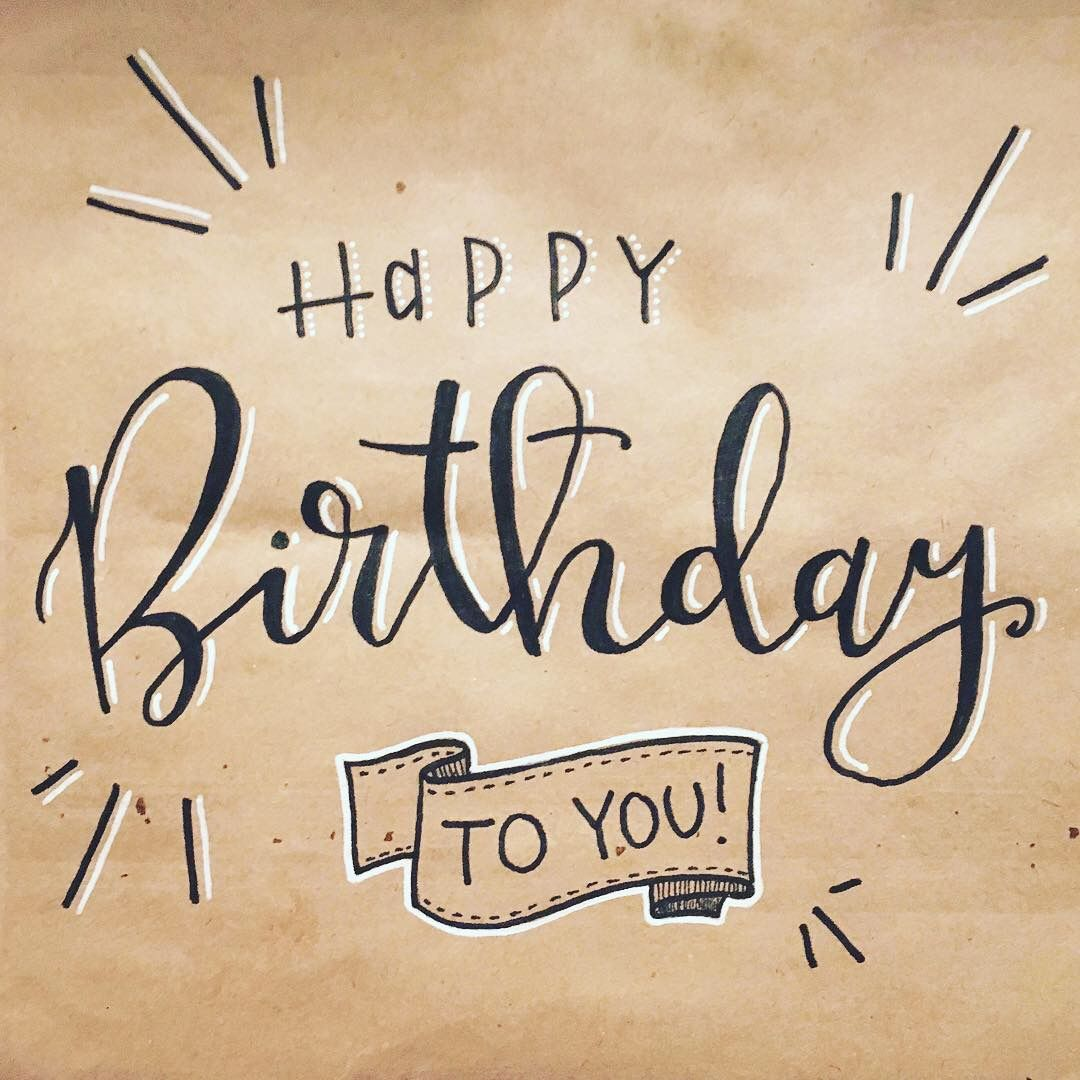 HaPPY
Birthday
TO YOU!